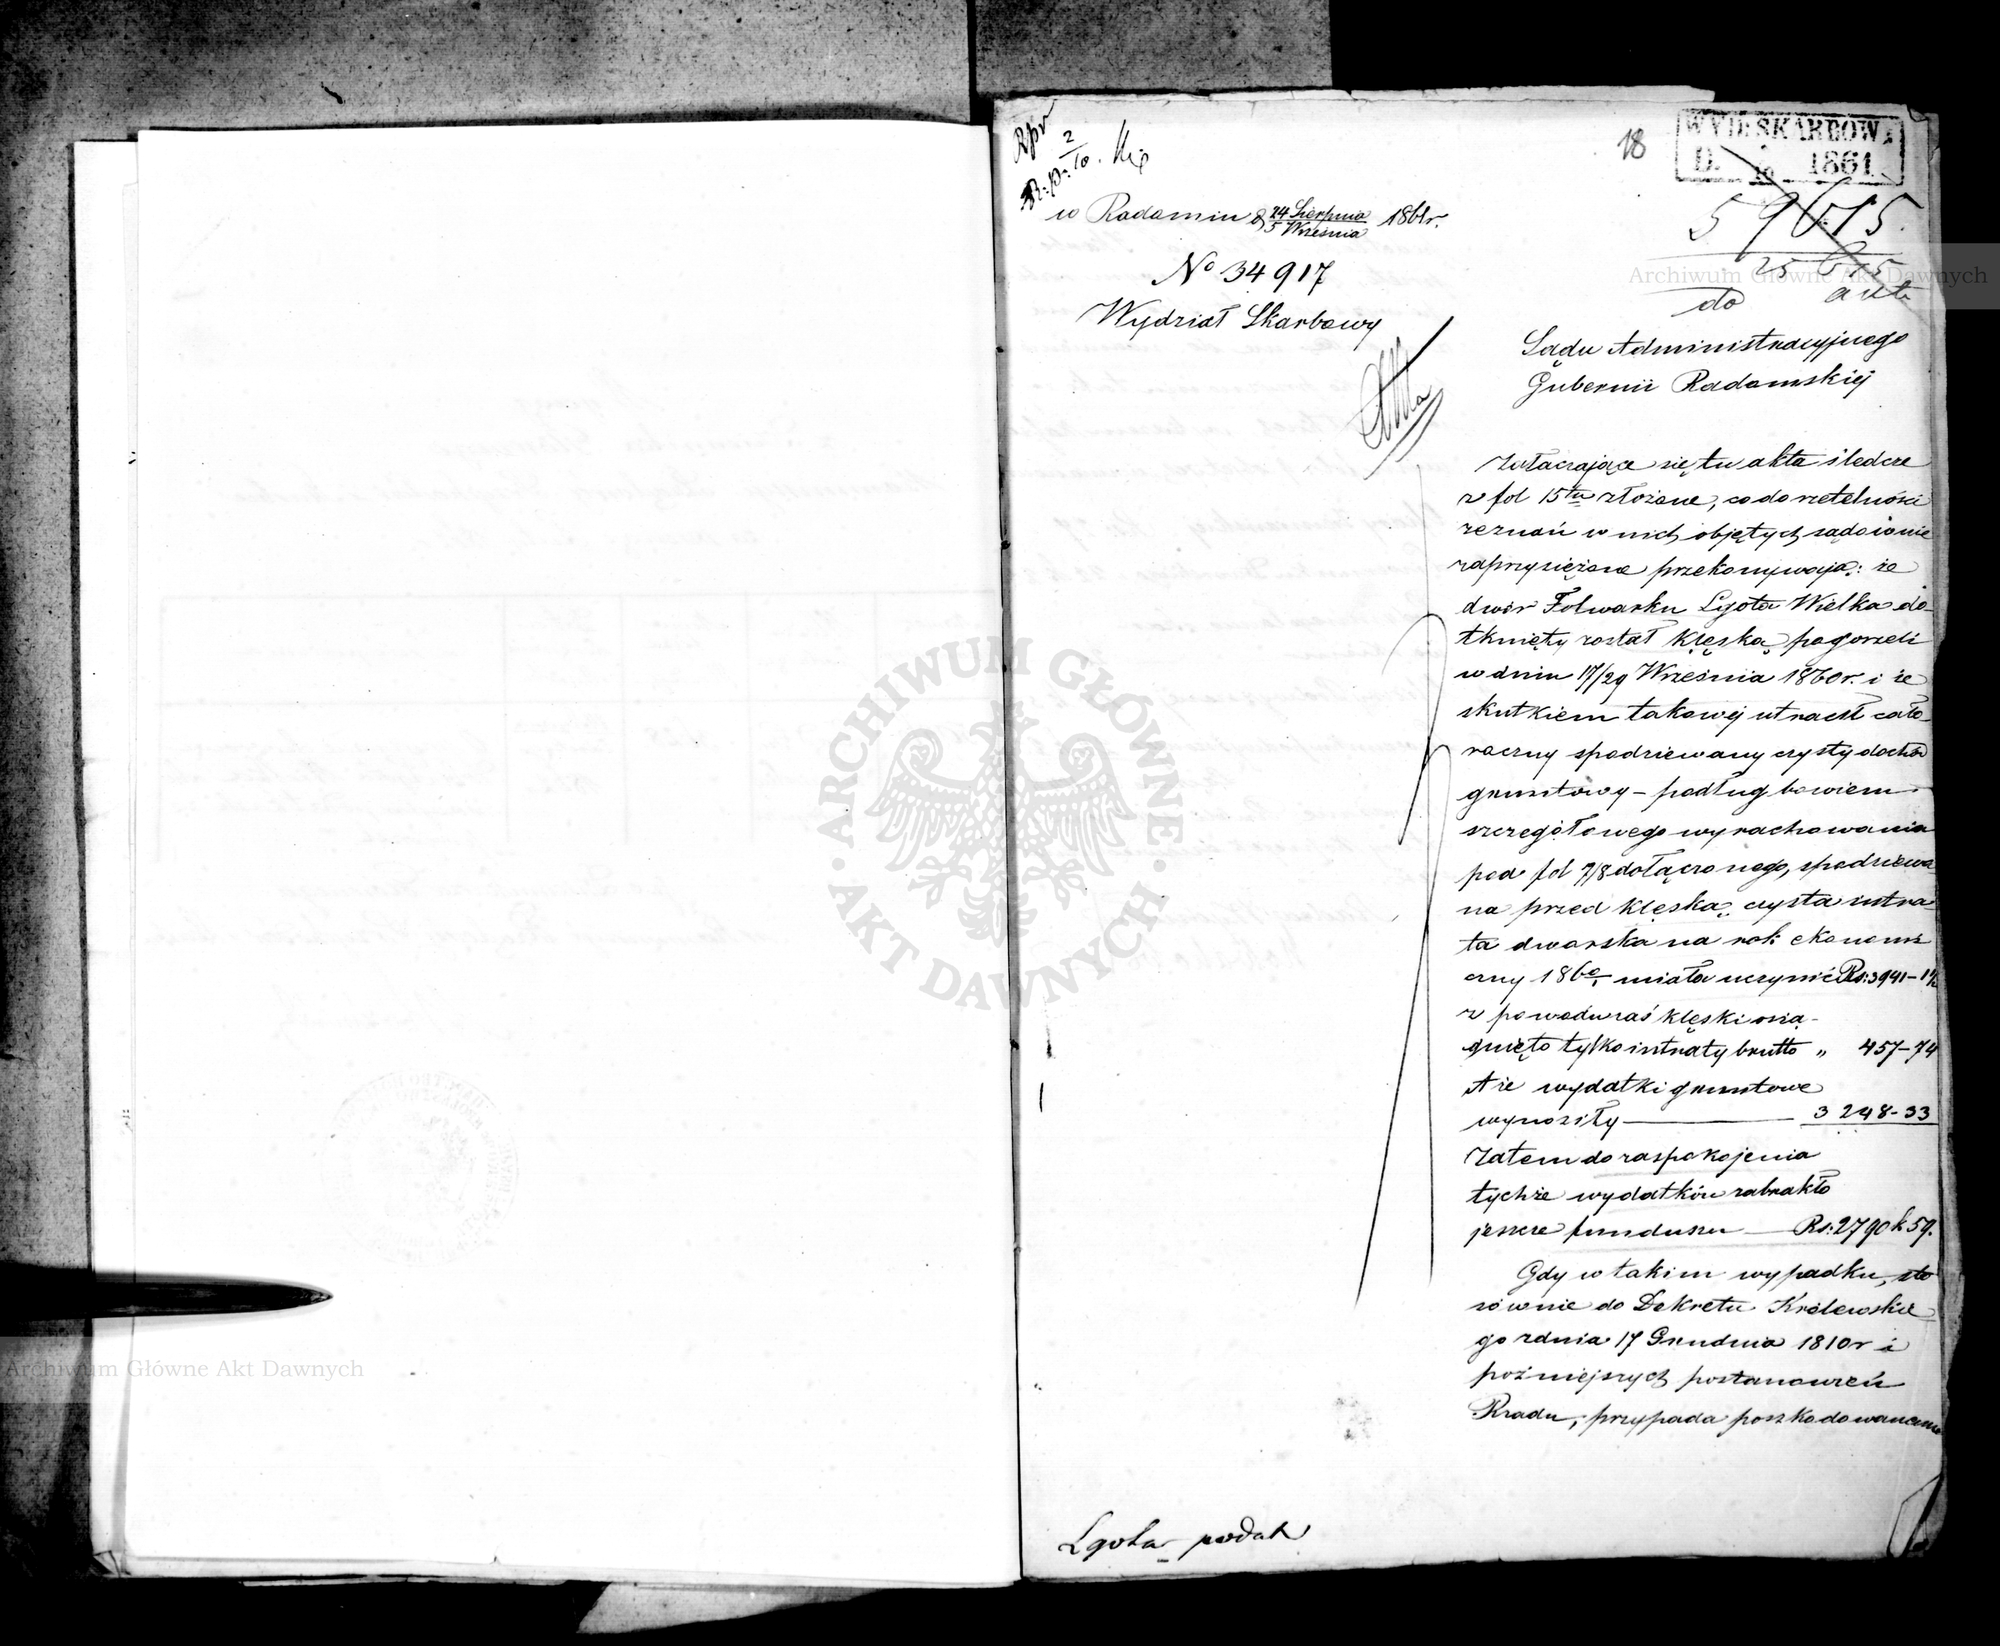 18
WYDZ. SKARBOWY
D. 1861
59615
25615
w Radomiu d 24 Sierpnia / 5 Września 1861r.
No 34917
Wydział Skarbowy
do
Sądu Administracyjnego
Gubernii Radomskiej
Załączające się tu akta śledcze
z fol 15tu złożone, co do rzetelności
zeznań w nich objętych sądownie
zaprzysiężone przekonywają: że
dwór Folwarku Lgota Wielka do-
tknięty został klęską pogorzeli
w dniu 17/29 Września 1860r. i że
skutkiem takowej utracił cało-
roczny spodziewany czysty dochód
gruntowy – podług bowiem
szczegółowego wyrachowania
pod fol 7/8 dołączonego, spodziewa
na przed klęską czysta intra-
ta dworska na rok ekonomi
czny 1860/1 miała uczynić Rs: 3941–1½
z powodu zaś klęski osią-
gnięto tylko intraty brutto „ 457–74
A że wydatki gruntowe
wynosiły 3 248-33
Zatem do zaspokojenia
tychże wydatków zabrakło
jeszcze funduszu Rs: 2790 k 59.
Gdy w takim wypadku, sto
sownie do Dekretu Królewskie
go z dnia 17 Grudnia 1810r i
poźniejszych postanowień
Rządu, przypada poszkodowanemu
Lgota podat
Archiwum Główne Akt Dawnych
Archiwum Główne Akt Dawnych
ARCHIWUM GŁÓWNE
AKT DAWNYCH